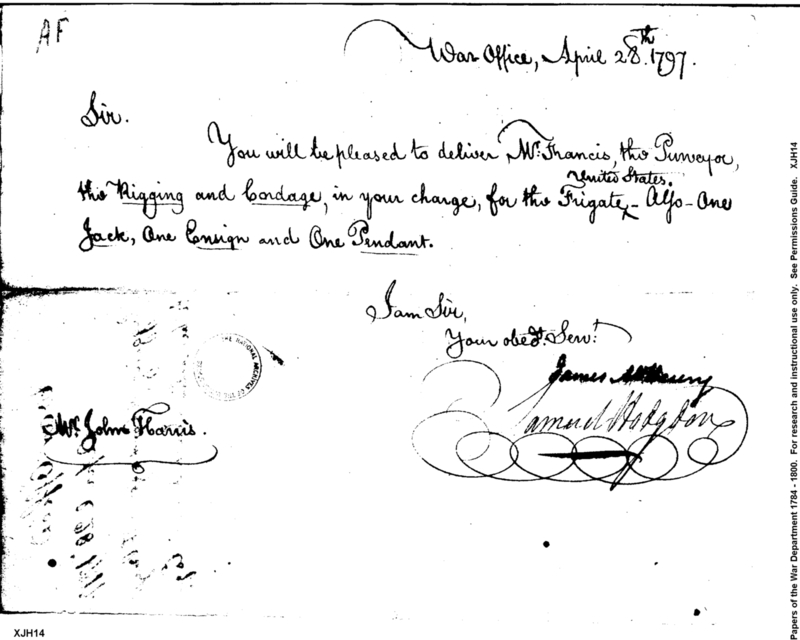 AF
War Office, April 28th. 1797.
Sir.
You will be pleased to deliver Mr. Francis, the Purveyor,
United States.
the Rigging and Cordage, in your charge, for the Frigate x - Also - One
Jack, One Ensign and One Pendant.
I am Sir,
Your obedt. Servt.
James McHenry
Samuel Hodgdon
Mr. John Harris.
THE NATIONAL ARCHIVES OF THE
XJH14
Papers of the War Department 1784 - 1800. For research and instructional use only. See Permissions Guide. XJH14